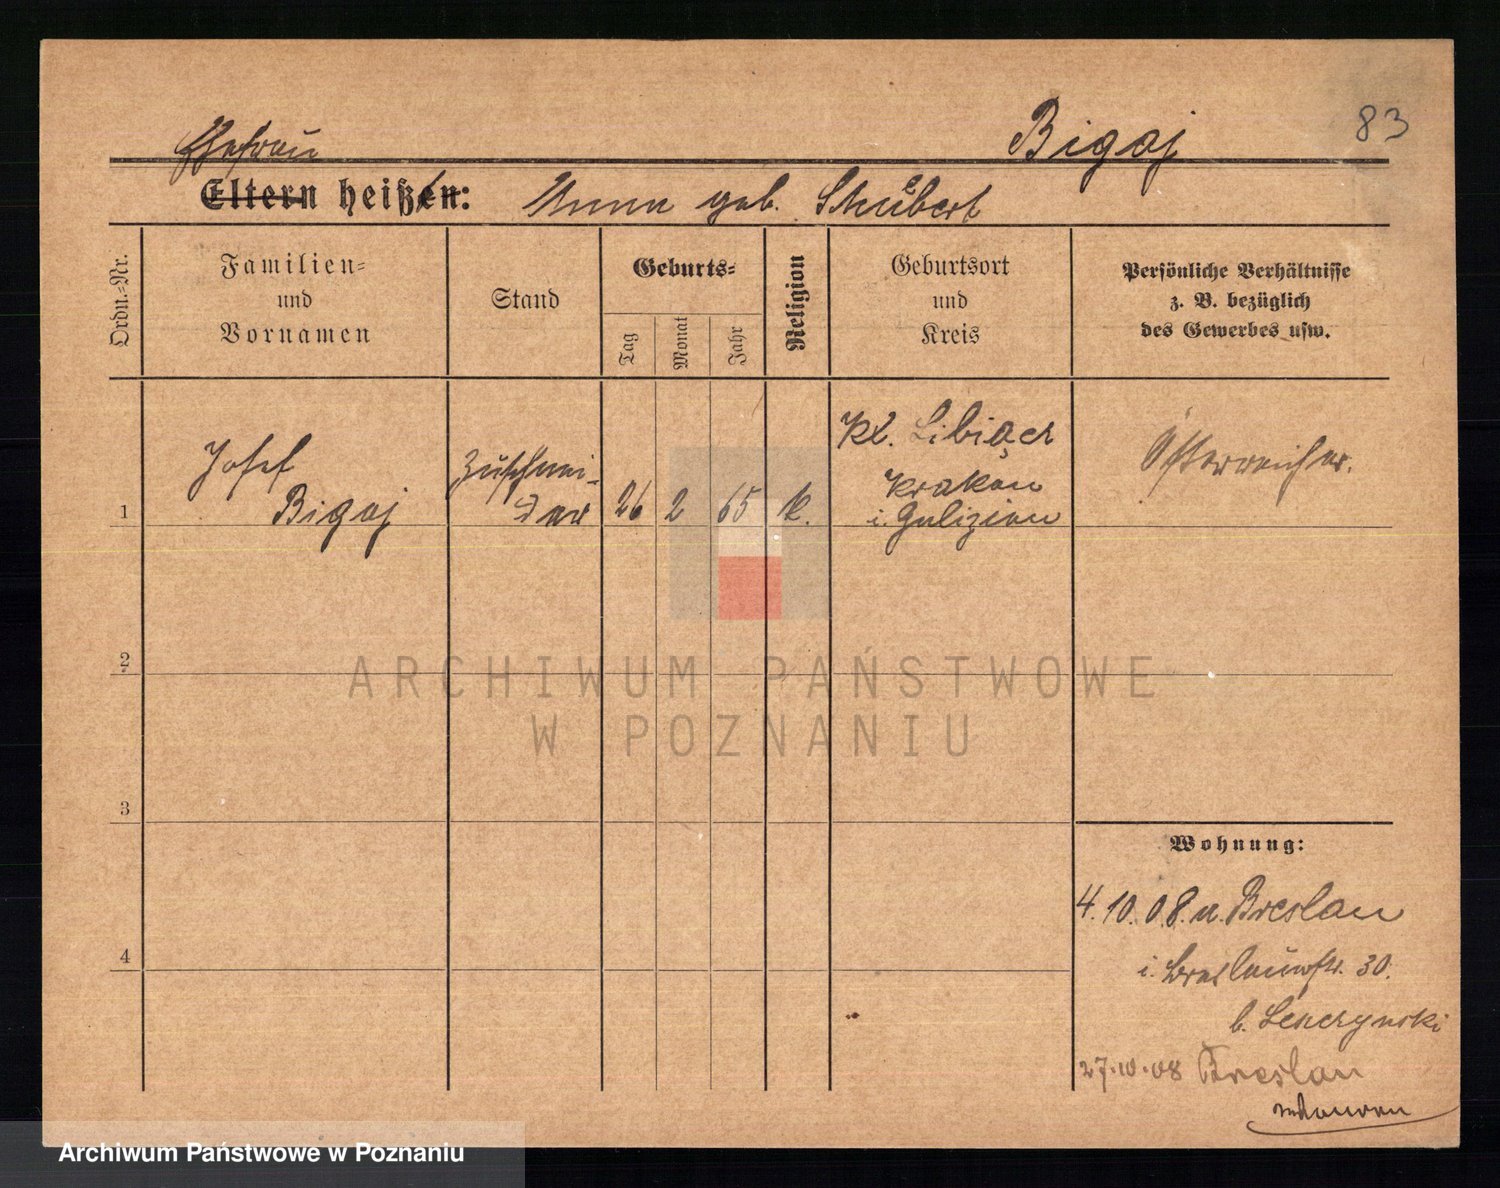 Bigaj 83
Ehefrau
Eltern heißen: Anna geb. Schubert
Ordn.-Nr.
Familien-
und
Vornamen
Stand
Geburts-
Tag
Monat
Jahr
Religion
Geburtsort
und
Kreis
Persönliche Verhältnisse
z. B. bezüglich
des Gewerbes usw.
1
Josef
Bigaj
Zuschnei-
der
26
2
65
k.
Kl. Libiąer
Krakau
i. Galizien
Österreicher.
2
3
4
ARCHIWUM PAŃSTWOWE
W POZNANIU
Wohnung:
4.10.08. a. Breslau
i. Breslauerstr. 30.
b. Lenczynski
27.10.08 Breslau
Archiwum Państwowe w Poznaniu